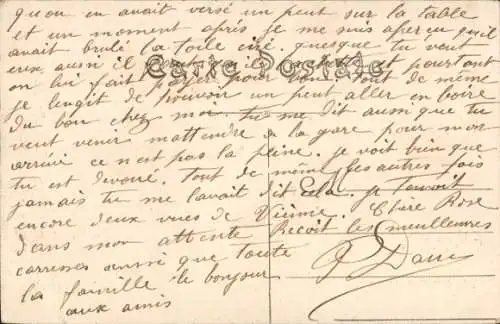 quon en avait versé un peut sur la table
et un moment après je me suis aperçu quil
avait brulé la toile ciré quesque tu veut
eux aussi il et pourtant
on lui fait payer pour bon tout de même
Carte Postale
je lengit de pouvoir un peut aller en boire
du bon chez moi. tu me dit aussi que tu
veut venir mattendre a la gare pour mon
arrivé ce nest pas la peine. je voit bien que
tu est devoué. tout de même les autres fois
jamais tu me lavait dit cela. je tenvoit
encore deux vues de Chère Rose
dans mon attente Recoit les meulleures
carresses ainsi que toute
la famille le bonjour
aux amis